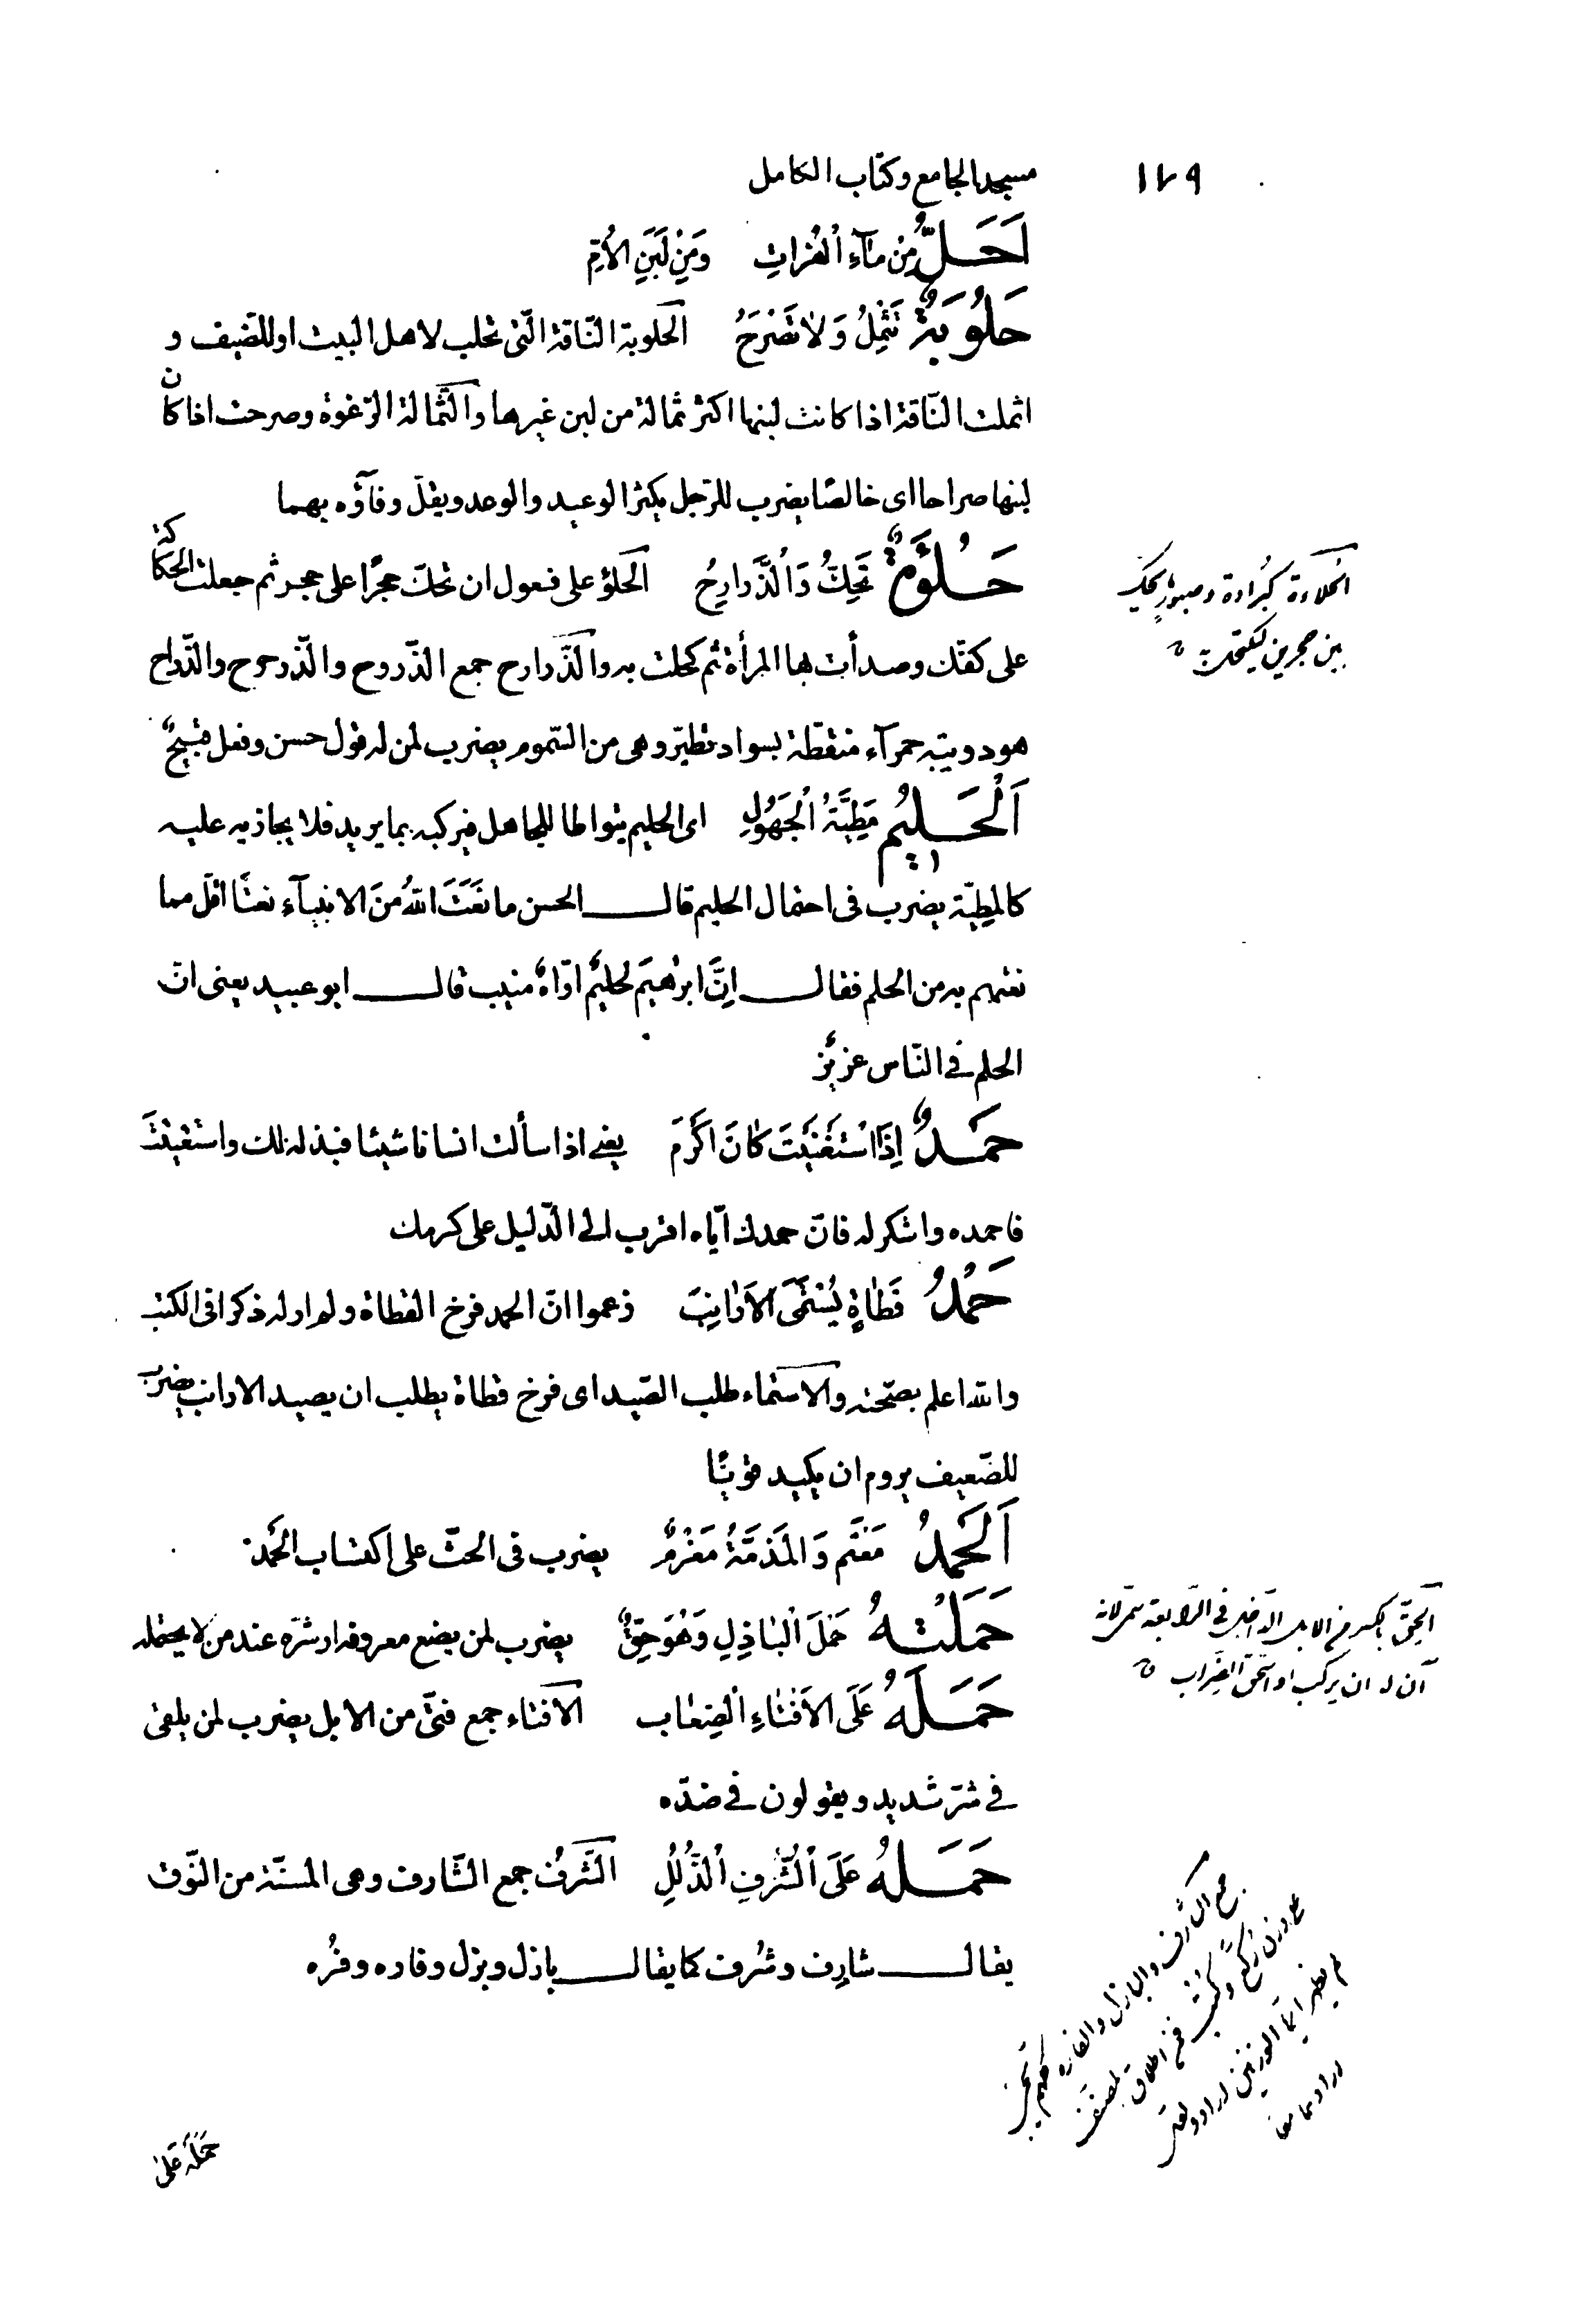 ١٧٩
مسجد الجامع وكتاب الكامل
اَحَلُّ مِنْ مآءِ الْفُراتِ وَمِنْ لَبَنِ الاُمِّ
حَلُوبَةٌ تُثْمِلُ وَلاٰ تُصْرِحُ الحلوبة النّاقة الّتى تحلب لاهل البيت اوللضّيف و
اثملت النّاقة اذا كانت لبنها اكثر ثمالة من لبن غيرها والثّمالة الرّغوة وصرحت اذا كان
لبنها صراحا اى خالصًا يضرب للرّجل يكثر الوعيد والوعد ويقلّ وفآؤه بهما
حَلُوْءَةٌ تُحَكُّ بِالذَّرارِيحِ الحلؤ على فعول ان تحكّ حجرًا على حجر ثم جعلت الحكاكة
على كفّك وصدأت بها المرأة ثم كحلت به والذّرارح جمع الذّروح والذّرحوح والذّراح
هو دويبّه حمرآء منقطة بسواد تطير وهى من السّموم يضرب لمن له قول حسن وفعل قبيحٌ
اَلْحَلِيمُ مَطِيَّةُ الْجَهُولِ اى الحليم يتواطا للجاهل فيركبه بما يريد فلا يجازيه عليه
كالمطِيّة يضرب فى احتمال الحليم قال الحسن ما نَعَتَ اللهُ مِنَ الانبيآء نعتًا اقلّ مما
نعتهم به من الحلم فقال اِنَّ ابرٰهيمَ لحليمٌ اوّاهٌ منيب قال ابو عبيد يعنى انّ
الحلم فى النّاس عزيزٌ
حَمْدٌ اِذَا اسْتَغْنَيْتَ كانَ اَكْرَمَ يعنى اذا سألت انسانا شيئا فبذله لك واستغنيْتَ
فاحمده واشكر له فانّ حمدك ايّاه اقرب الى الدّليل على كرمك
حَمْدُ قَطاةٍ يُسْتَمَى الاَرانِبَ زعموا انّ الحمد فرخ القطاة ولم ار له ذكرا فى الكتب
والله اعلم بصحّته والاستماء طلب الصّيد اى فرخ قطاة يطلب ان يصيد الارانب يضرب
للضّعيف يروم ان يكيد قويًّا
اَلْحَمْدُ مَغْنَم وَالْمَذَمَّةُ مَغْرَمٌ يضرب فى الحثّ على اكتساب الحَمد
حَمَلْتُهُ حَمْلَ الْبازِلِ وَهُوَ حِقٌّ يضرب لمن يضع معروفه او شرّه عند من لا يحتمله
حَمَلَهُ عَلَى الاَفْتاءِ الصِّعاب الافتاء جمع فتىّ من الابل يضرب لمن يلقى
فى شرّ شديد ويقولون فى ضدّه
حَمَلَهُ عَلَى الشُّرْفِ الذُّلُلِ الشُّرفُ جمع الشّارف وهى المسنّة من النّوق
يقال شارِف وشُرف كما يقال بازل وبزل وفاره وفُره
الحُلاءة كبُرادة وصبورٍ يحك
بين حجرين ليكتحل به
الحِقّ بالكسر من الابل الداخل فى الرّابعة سمى لانه
آن له ان يركب او استحقّ الضِراب
جمع الشارف والبازل والفاره
على وزن رُكّع وكُتُب
حَمَلَهُ عَلىٰ